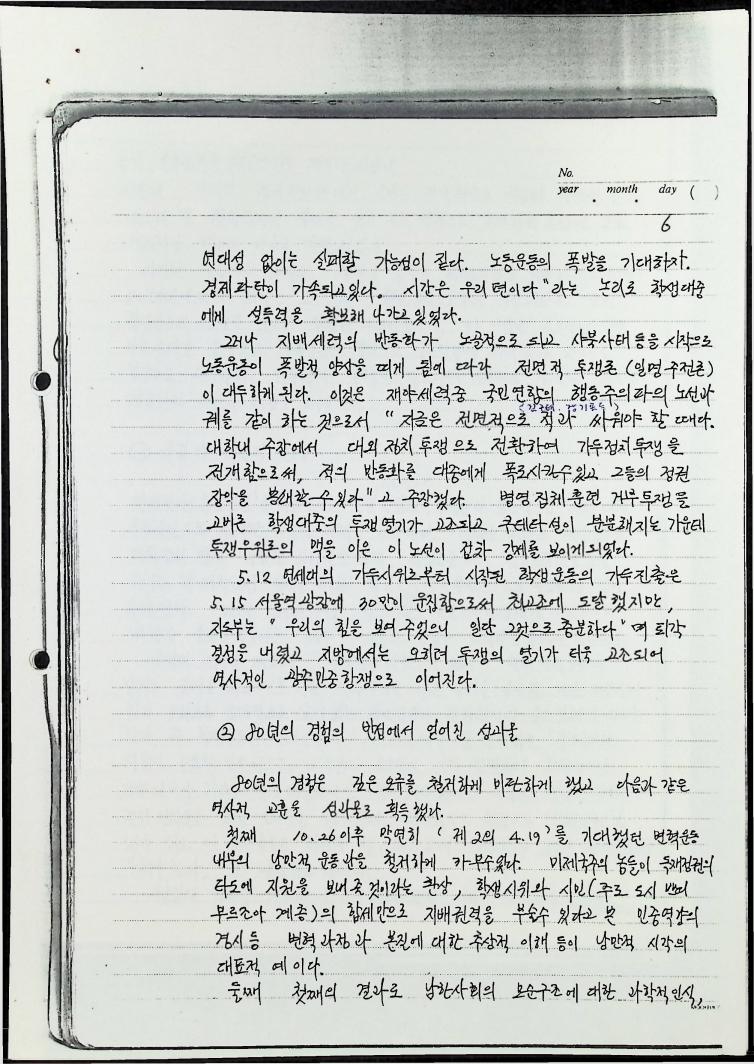 No.
year . month . day ( )
6
연대성 없이는 실패할 가능성이 짙다. 노동운동의 폭발을 기대하자.
경제파탄이 가속되고있다. 시간은 우리편이다" 라는 논리로 학생대중
에게 설득력을 확보해 나가고 있었다.
그러나 지배세력의 반동화가 노골적으로 되고 사북사태 등을 시작으로
노동운동이 폭발적 양상을 띠게 됨에 따라 전면적 투쟁론 (일명 주전론)
이 대두하게 된다. 이것은 재야세력중 국민연합의 행동주의파의 노선과
궤를 같이 하는 것으로서 " 지금은 전면적으로 적과 싸워야 할 때다.
대학내 주장에서 대외 정치 투쟁으로 전환하여 가두정치투쟁을
전개함으로써, 적의 반동화를 대중에게 폭로시킬수있고 그들의 정권
장악을 봉쇄할 수 있다" 고 주장했다. 병영 집체 훈련 거부투쟁을
고비로 학생대중의 투쟁열기가 고조되고 쿠데타설이 분분해지는 가운데
투쟁우위론의 맥을 이은 이 노선이 점차 강세를 보이게되었다.
5.12 연세대의 가두시위로부터 시작된 학생운동의 가두진출은
5.15 서울역광장에 30만이 운집함으로써 최고조에 도달했지만,
지도부는 " 우리의 힘을 보여 주었으니 일단 그것으로 충분하다" 며 퇴각
결정을 내렸고 지방에서는 오히려 투쟁의 열기가 더욱 고조되어
역사적인 광주민중항쟁으로 이어진다.
② 80년의 경험의 반성에서 얻어진 성과물
80년의 경험은 깊은 오류를 철저하게 비판하게 했고 다음과 같은
역사적 교훈을 성과물로 획득했다.
첫째 10.26이후 막연히 ( 제2의 4.19)를 기대했던 변혁운동
내부의 낭만적 운동관을 철저하게 까부수었다. 미제국주의 놈들이 독재정권의
타도에 지원을 보내줄 것이라는 환상, 학생시위와 시민(주로 도시 쁘띠
부르조아 계층)의 합세만으로 지배권력을 부술수 있다고 본 민중역량의
경시 등 변혁과정과 본질에 대한 추상적 이해 등이 낭만적 시각의
대표적 예이다.
둘째 첫째의 결과로 남한사회의 모순구조에 대한 과학적인식,